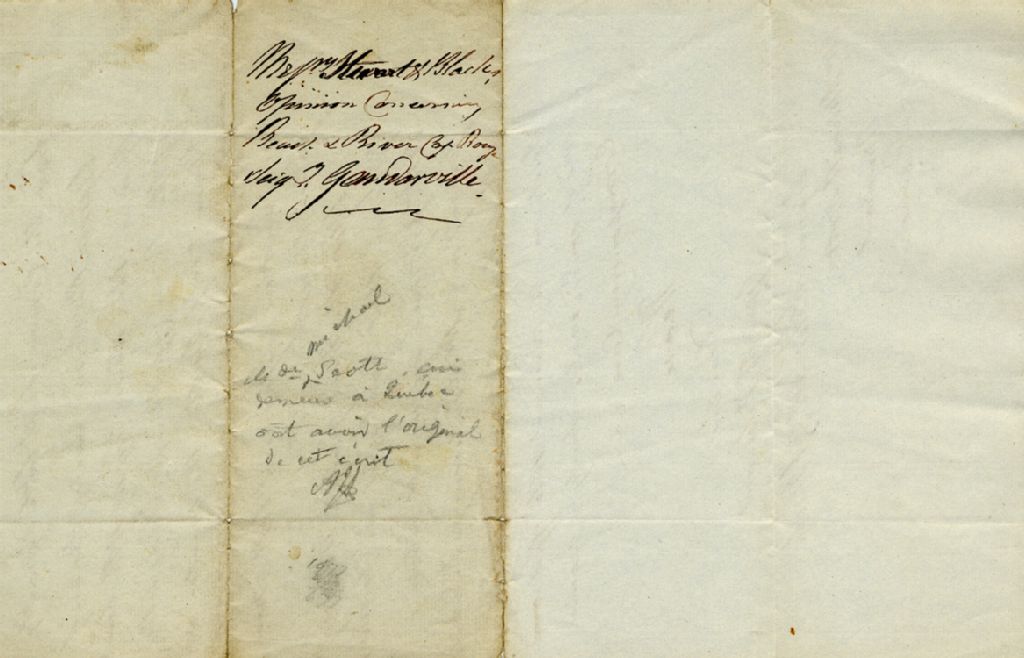 Messrs Stewart & Black's
Opinion Concerning
Beach & River Cap Rouge
Seigy. Gaudarville
michael
Scott, qui
demeure à Quebec
doit avoir l'original
de cet écrit